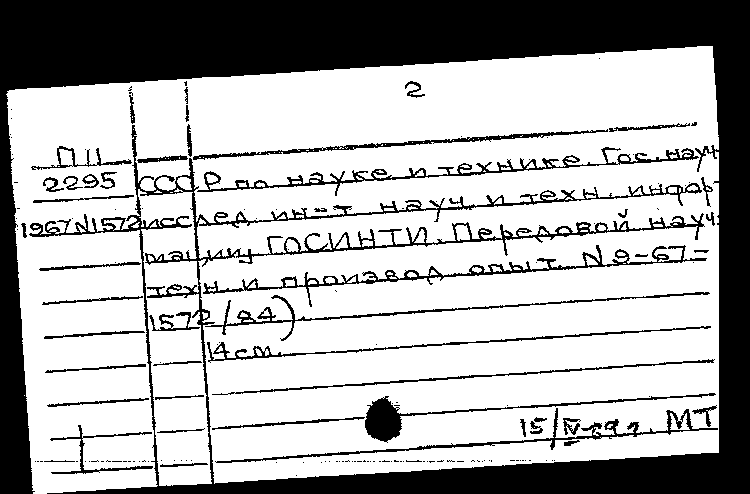 2
П 11
2295 СССР по науке и технике. Гос. науч.
1967 N1572 исслед. ин-т науч. и техн. инфор-
мации ГОСИНТИ. Передовой науч.
техн. и производ. опыт. N 9-67=
1572/84).
14 см.
15/IV-69 г. МТ